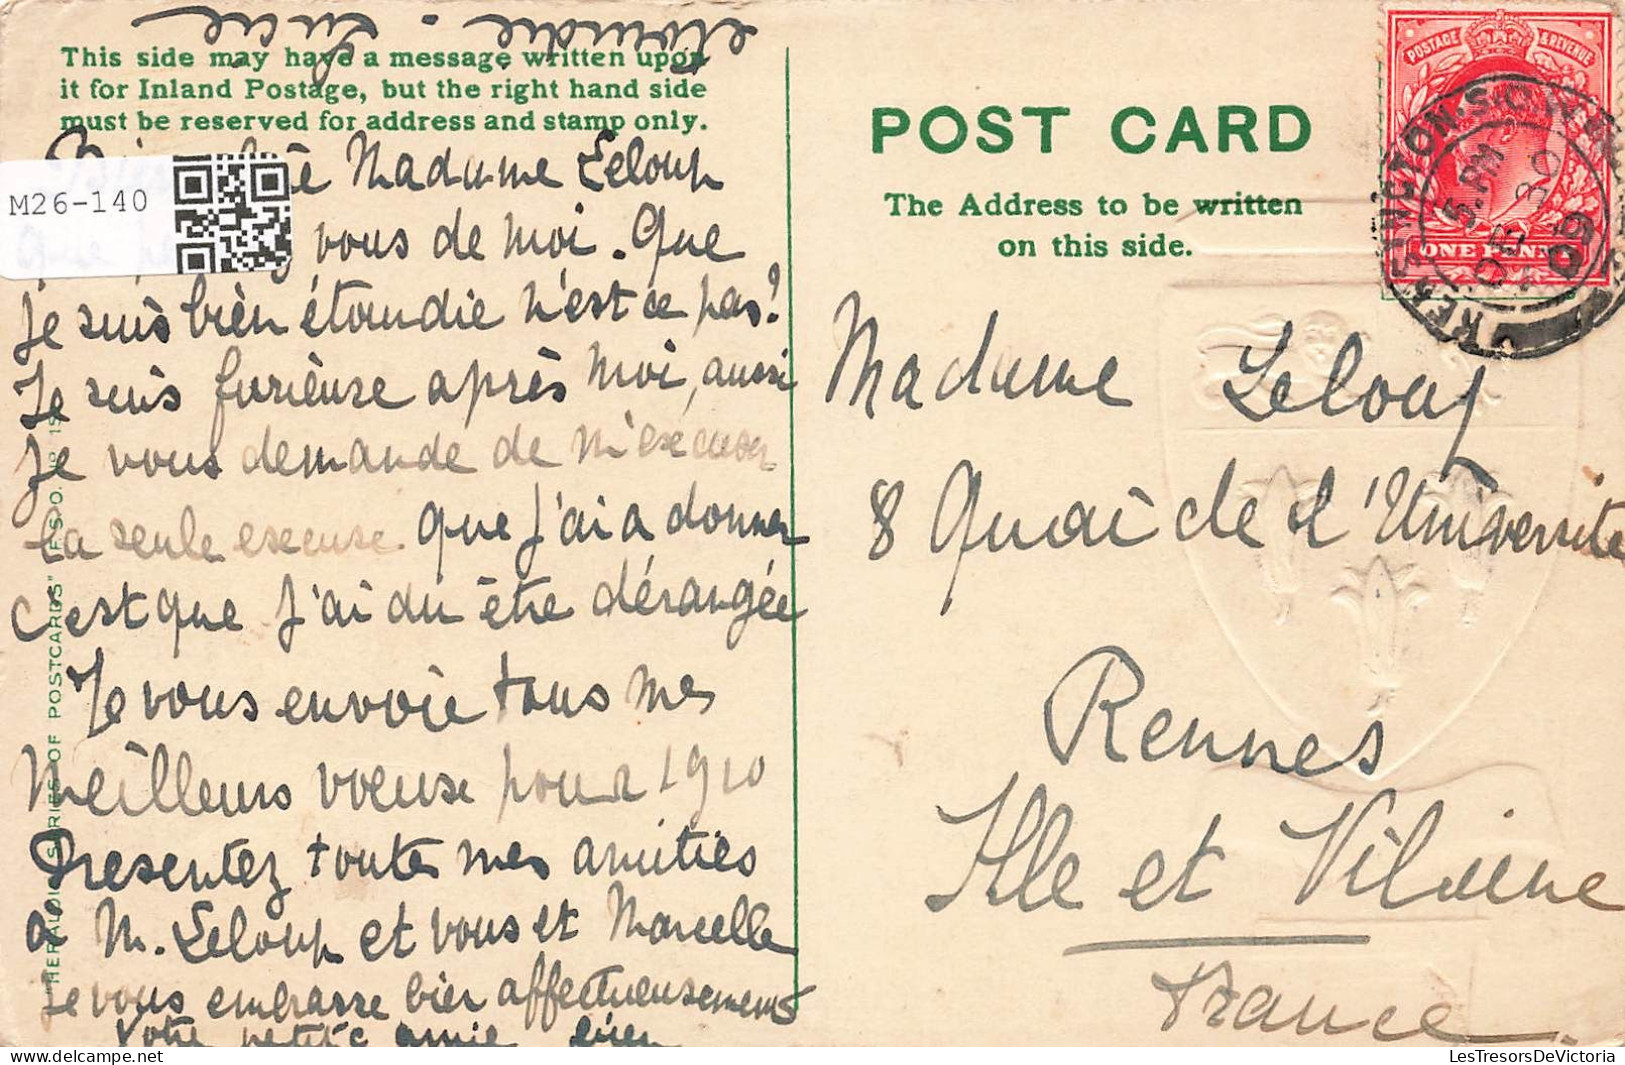 This side may have a message written upon
it for Inland Postage, but the right hand side
must be reserved for address and stamp only.
Madame Leloup
M26-140
vous de moi. Que
Je suis bien étourdie n'est ce pas?
Je suis furieuse après moi, aussi
je vous demande de m'excuser
La seule excuse que j'ai a donner
c'est que j'ai du être dérangée
Je vous envoie tous mes
meilleurs voeuse pour 1910
Presentez toutes mes amitiés
a M. Leloup et vous et Marcelle
Je vous embrasse bien affectueusement
Votre petite amie bien
étourdie. Lucie
"HERALDIC SERIES OF POSTCARDS"
POST CARD
The Address to be written
on this side.
POSTAGE & REVENUE
ONE PENNY
5. PM
DE 30
09
Madame Leloup
8 Quai de l'Université
Rennes
Ille et Vilaine
France.
LesTresorsDeVictoria